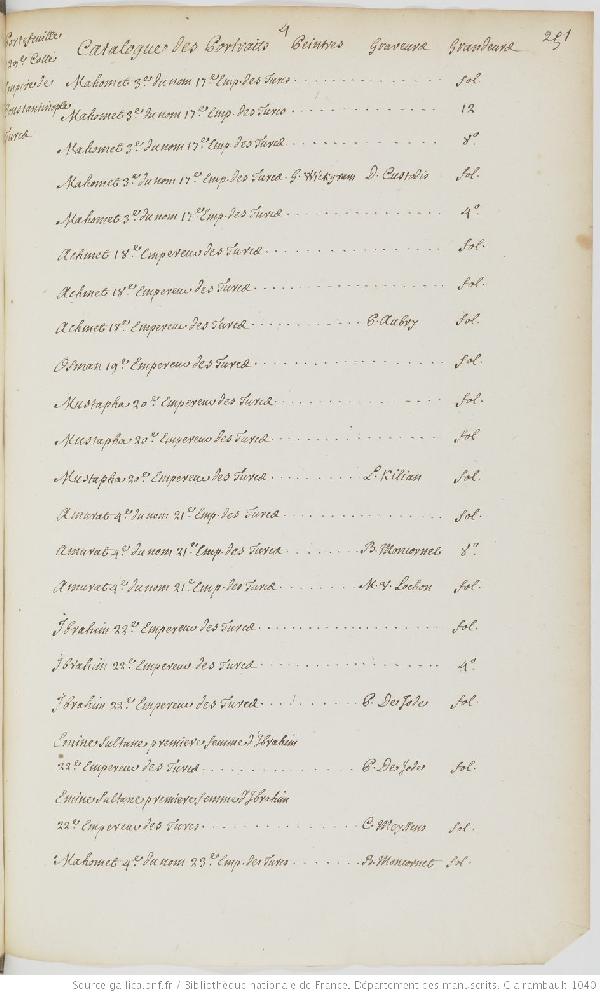 4
251
Portefeuille
29e. Colle
Empire de
Constantinople
Turcs
Catalogue des Portraits Peintres Graveurs Grandeurs
Mahomet 3e. du nom 17e. Emp. des Turcs fol.
Mahomet 3e. du nom 17e. Emp. des Turcs 12
Mahomet 3e. du nom 17e. Emp. des Turcs 8o.
Mahomet 3e. du nom 17e. Emp. des Turcs G. Wickgram D. Custodis fol.
Mahomet 3e. du nom 17e. Emp. des Turcs 4o.
Achmet 18e. Empereur des Turcs fol.
Achmet 18e. Empereur des Turcs fol.
Achmet 18e. Empereur des Turcs P. Aubry fol.
Osman 19e. Empereur des Turcs fol.
Mustapha 20e. Empereur des Turcs fol.
Mustapha 20e. Empereur des Turcs fol.
Mustapha 20e. Empereur des Turcs L. Kilian fol.
Amurat 4e. du nom 21e. Emp. des Turcs fol.
Amurat 4e. du nom 21e. Emp. des Turcs B. Moncornet 8o.
Amurat 4e. du nom 21e. Emp. des Turcs M. V. Lochon fol.
Ibrahim 22e. Empereur des Turcs fol.
Ibrahim 22e. Empereur des Turcs 4o.
Ibrahim 22e. Empereur des Turcs P. De Jode fol.
Emine Sultane premiere femme d'Ibrahim
22e. Empereur des Turcs P. De Jode fol.
Emine Sultane premiere femme d'Ibrahim
22e. Empereur des Turcs C. Meyssens fol.
Mahomet 4e. du nom 23e. Emp. des Turcs B. Moncornet fol.
Source gallica.bnf.fr / Bibliothèque nationale de France. Département des manuscrits. Clairambault 1040